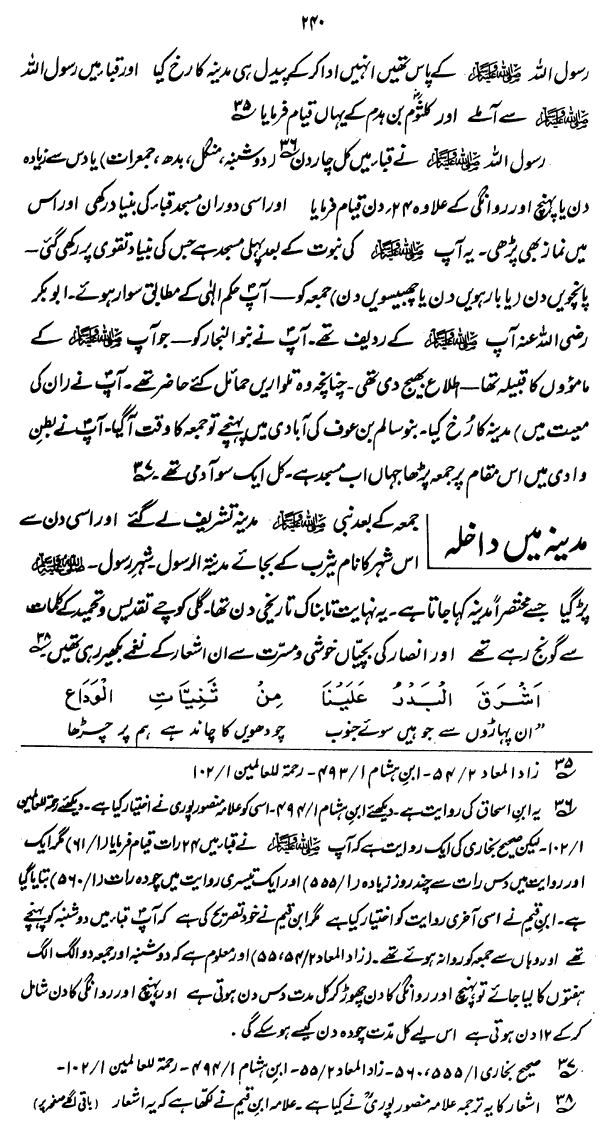 ۲۴۰
رسول اللہ ﷺ کے پاس تھیں انہیں ادا کر کے پیدل ہی مدینہ کا رخ کیا اور قبار میں رسول اللہ
ﷺ سے آملے اور کلثومؓ بن ہدم کے یہاں قیام فرمایا ۳۵؎
رسول اللہ ﷺ نے قبار میں کل چار دن ۳۶؎ (دوشنبہ، منگل، بدھ، جمعرات) یا دس سے زیادہ
دن یا پہنچ اور روانگی کے علاوہ ۲۴ دن قیام فرمایا اور اسی دوران مسجد قبار کی بنیاد رکھی اور اس
میں نماز بھی پڑھی۔ یہ آپ ﷺ کی نبوت کے بعد پہلی مسجد ہے جس کی بنیاد تقویٰ پر رکھی گئی۔
پانچویں دن (یا بارہویں دن یا چھبیسویں دن) جمعہ کو — آپؐ حکم الٰہی کے مطابق سوار ہوئے۔ ابوبکر
رضی اللہ عنہ آپ ﷺ کے ردیف تھے۔ آپؐ نے بنو النجار کو — جو آپ ﷺ کے
ماموؤں کا قبیلہ تھا — اطلاع بھیج دی تھی۔ چنانچہ وہ تلواریں حمائل کئے حاضر تھے۔ آپؐ نے (ان کی
معیت میں) مدینہ کا رُخ کیا۔ بنو سالم بن عوف کی آبادی میں پہنچے تو جمعہ کا وقت آگیا۔ آپؐ نے بطن
وادی میں اس مقام پر جمعہ پڑھا جہاں اب مسجد ہے۔ کل ایک سو آدمی تھے ۳۷؎
مدینہ میں داخلہ
جمعہ کے بعد نبی ﷺ مدینہ تشریف لے گئے اور اسی دن سے
اس شہر کا نام یثرب کے بجائے مدینۃ الرسول۔ شہرِ رسول۔ ﷺ
پڑگیا جسے مختصراً مدینہ کہا جاتا ہے۔ یہ نہایت تابناک تاریخی دن تھا۔ گلی کوچے تقدیس و تحمید کے کلمات
سے گونج رہے تھے اور انصار کی بچیاں خوشی و مسرت سے ان اشعار کے نغمے بکھیر رہی تھیں ۳۸؎
اَشْرَقَ الْبَدْرُ عَلَیْنَا مِنْ ثَنِیَّاتِ الْوَدَاعِ
”ان پہاڑوں سے جو ہیں سوئے جنوب چودھویں کا چاند ہے ہم پر چڑھا
۳۵؎ زاد المعاد ۲/ ۵۴۔ ابن ہشام ۱/ ۴۹۳۔ رحمۃ للعالمین ۱/ ۱۰۲
۳۶؎ یہ ابن اسحاق کی روایت ہے۔ دیکھئے ابن ہشام ۱/ ۴۹۴۔ اسی کو علامہ منصور پوری نے اختیار کیا ہے۔ دیکھئے رحمۃ للعالمین
۱/ ۱۰۲۔ لیکن صحیح بخاری کی ایک روایت ہے کہ آپ ﷺ نے قبار میں ۲۴ رات قیام فرمایا (۱/ ۶۱) مگر ایک
اور روایت میں دس رات سے چند روز زیادہ (۱/ ۵۵۵) اور ایک تیسری روایت میں چودہ رات (۱/ ۵۶۰) بتایا گیا
ہے۔ ابن قیم نے اسی آخری روایت کو اختیار کیا ہے مگر ابن قیم نے خود تصریح کی ہے کہ آپؐ قبار میں دوشنبہ کو پہنچے
تھے اور وہاں سے جمعہ کو روانہ ہوئے تھے۔ (زاد المعاد ۲/ ۵۴، ۵۵) اور معلوم ہے کہ دوشنبہ اور جمعہ دو الگ الگ
ہفتوں کا لیا جائے تو پہنچ اور روانگی کا دن چھوڑ کر کل مدت دس دن ہوتی ہے اور پہنچ اور روانگی کا دن شامل
کرکے ۱۲ دن ہوتی ہے اس لیے کل مدّت چودہ دن کیسے ہوسکے گی۔
۳۷؎ صحیح بخاری ۱/ ۵۵۵، ۵۶۰۔ زاد المعاد ۲/ ۵۵۔ ابن ہشام ۱/ ۴۹۴۔ رحمۃ للعالمین ۱/ ۱۰۲۔
۳۸؎ اشعار کا یہ ترجمہ علامہ منصور پوریؒ نے کیا ہے۔ علامہ ابن قیم نے لکھا ہے کہ یہ اشعار (باقی اگلے صفحہ پر)